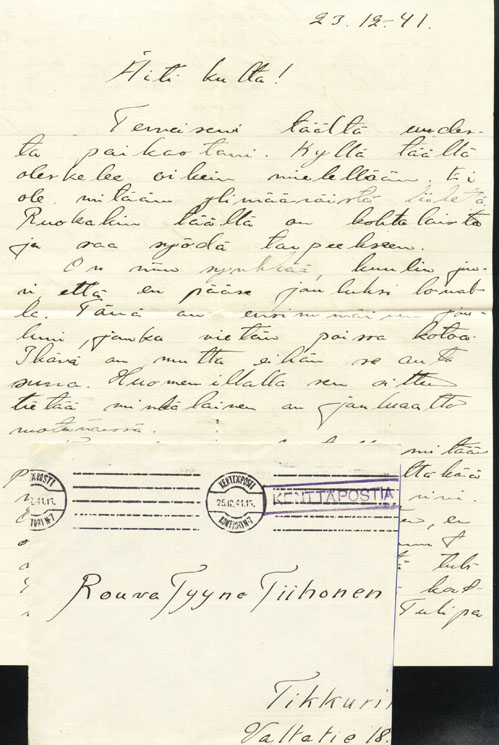 23.12-41.
Äiti kulta!
Terveiseni täältä uudes-
ta paikastani. Kyllä täällä
oleskelee oikein mielellään, ei
ole mitään ylimääräistä
Ruokakin täällä on kohtalaista
ja saa syödä tarpeekseen.
On niin synkkää, kuulin juu-
ri että en pääse jouluksi lomal-
le. Tämä on ensimmäinen jou-
luni, jonka vietän poissa kotoa.
Ikävä on, mutta eihän se auta
surra. Huomen illalla sen sitten
tietää minkälainen on jouluaatto
mitään
KENTTÄPOSTI
25.12.41.13.
KONTTORI N:7
KENTTÄPOSTIA
Rouva Tyyne Tiihonen
Tikkuri
Valtatie 18.
en
tuli
Tulipa